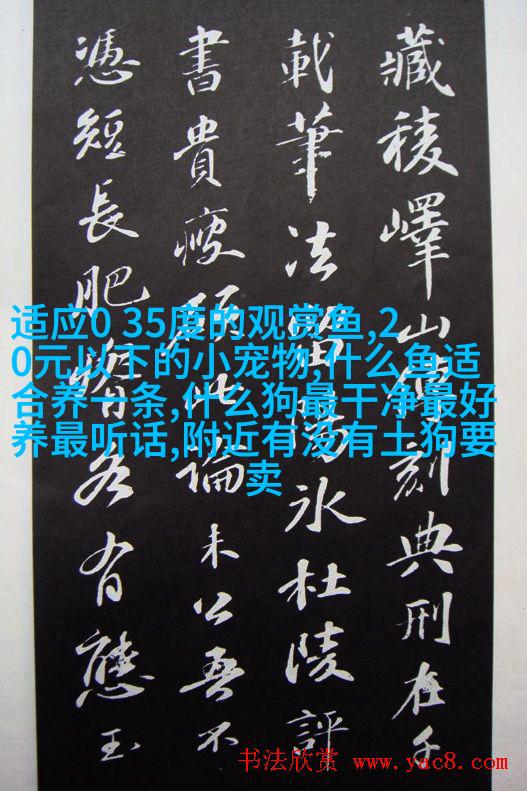 藏稜嶧山傳刻典刑在千
載筆法留陽氷杜陵評
書貴瘦硬此論未公吾不
憑短長肥瘠各有態玉
适应0 35度的观赏鱼,2
0元以下的小宠物,什么鱼适
合养一条,什么狗最干净最好
养最听话,附近有没有土狗要
卖
书法欣赏 www.yac8.com